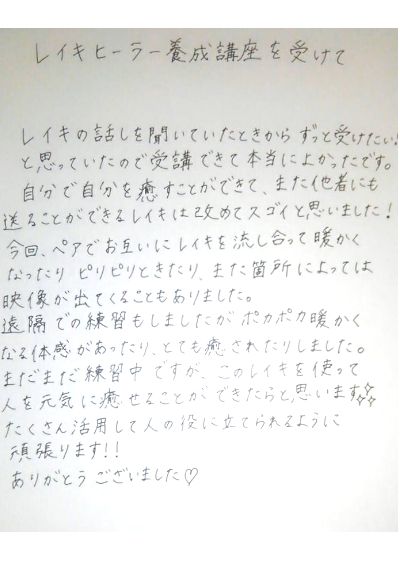 レイキヒーラー養成講座を受けて
レイキの話しを聞いていたときから ずっと受けたい!
と思っていたので受講できて本当によかったです。
自分で自分を癒すことができて、また他者にも
送ることができるレイキは改めてスゴイと思いました!
今回、ペアでお互いにレイキを流し合って暖かく
なったり ピリピリときたり、また箇所によっては
映像が出てくることもありました。
遠隔での練習もしましたが ポカポカ暖かく
なる体感があったり、とても癒されたりしました。
まだまだ練習中ですが、このレイキを使って
人を元気に癒せることができたらと思います✨
たくさん活用して人の役に立てられるように
頑張ります!!
ありがとうございました♡